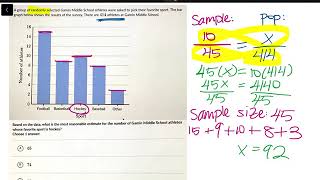 A group of randomly selected Gamin Middle School athletes were asked to pick their favorite sport. The bar
graph below shows the results of the survey. There are 414 athletes at Gamin Middle School.
Number of athletes
16
14
12
10
8
6
4
2
0
Football
Basketball
Hockey
Baseball
Other
Sport
Based on the data, what is the most reasonable estimate for the number of Gamin Middle School athletes
whose favorite sport is hockey?
Choose 1 answer:
A
65
74
Sample:
Pop:
10/45 = x/414
45(x) = 10(414)
45x/45 = 4140/45
Sample size: 45
15+9+10+8+3
x=92